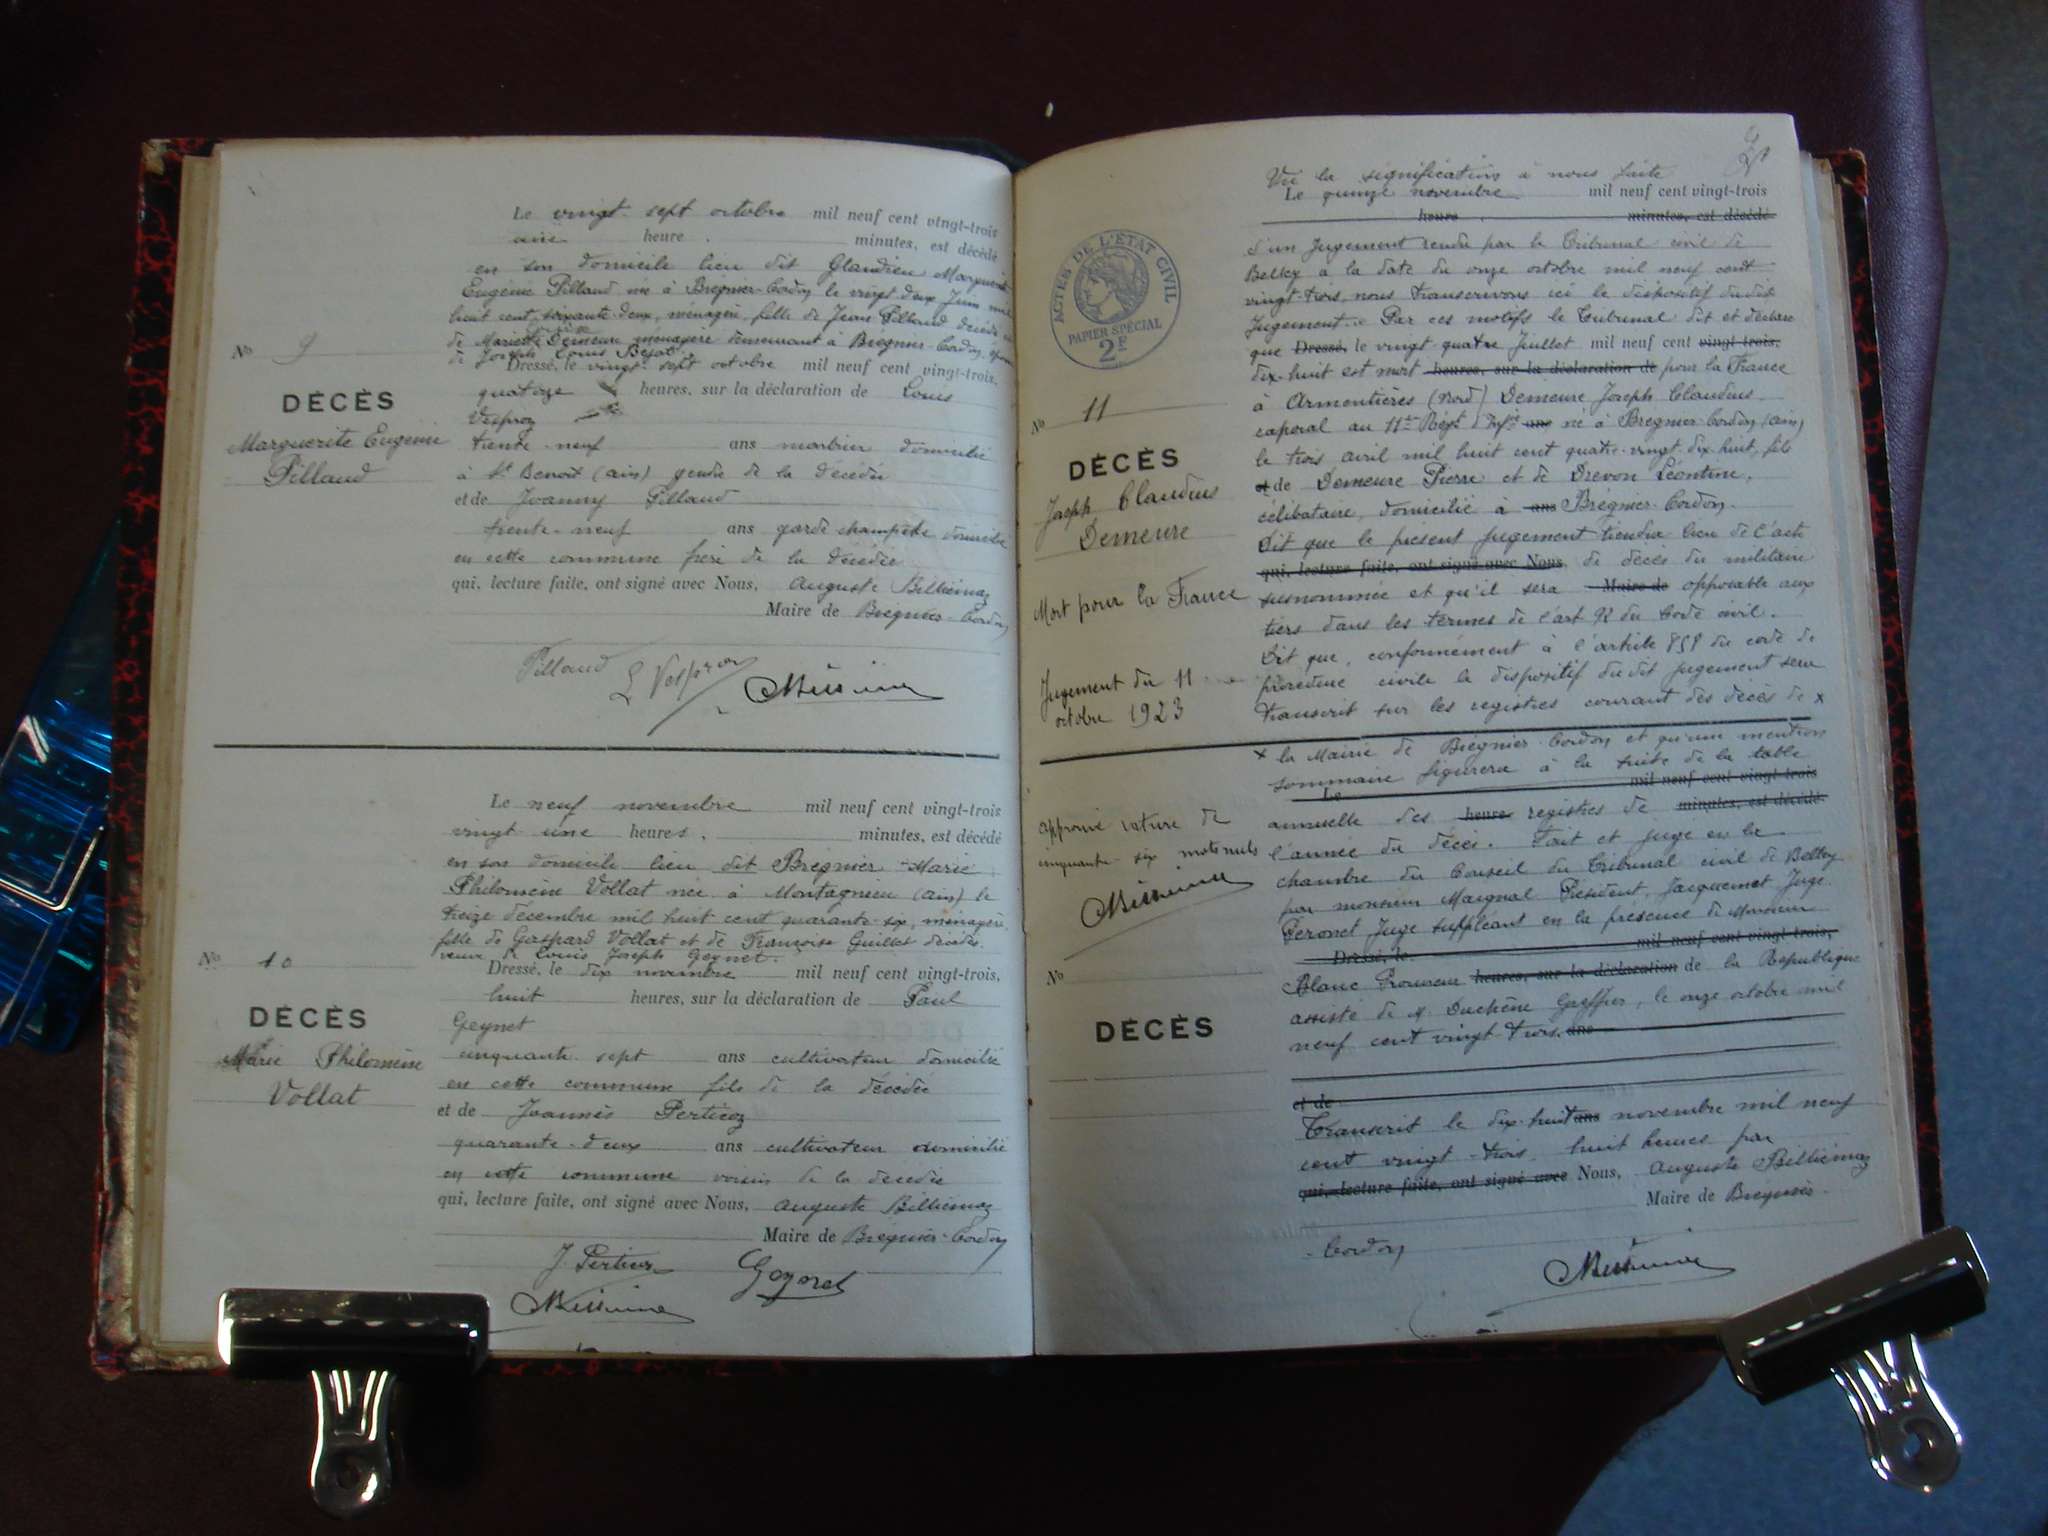 Le vingt sept octobre mil neuf cent vingt-trois
heure minutes, est décédé
en son domicile lieu dit Glandieu Marguerite
Eugénie Pillaud née à Bregnier-Cordon le vingt deux Juin mil
huit cent soixante deux, ménagère, fille de Jean Pillaud décédé et
de Mariette Demeure ménagère demeurant à Bregnier-Cordon, épouse
de Joseph Louis Bejat.
Dressé, le vingt sept octobre mil neuf cent vingt-trois,
quatorze heures, sur la déclaration de Louis
Vesproz
trente-neuf ans domicilié
à St Benoit (ain) gendre de la décédée
et de Joanny Pillaud
trente-neuf ans garde champêtre domicilié
en cette commune frère de la décédée
qui, lecture faite, ont signé avec Nous, Auguste Billiémaz
Maire de Brégnier-Cordon
Pillaud
No 9
DÉCÈS
Marguerite Eugénie
Pillaud
Le neuf novembre mil neuf cent vingt-trois
vingt une heures, minutes, est décédé
en son domicile lieu dit Brégnier Marie
Philomène Vollat née à Montagnieu (ain) le
treize décembre mil huit cent quarante-six, ménagère,
fille de Gaspard Vollat et de Françoise Guillet décédés.
veuve de Louis Joseph Geynet.
Dressé, le dix novembre mil neuf cent vingt-trois,
huit heures, sur la déclaration de Paul
Geynet
cinquante sept ans cultivateur domicilié
en cette commune fils de la décédée
et de Joannès Perticoz
quarante-deux ans cultivateur domicilié
en cette commune voisin de la décédée
qui, lecture faite, ont signé avec Nous, Auguste Billiémaz
Maire de Brégnier-Cordon
J. Perticoz Geynet
No 10
DÉCÈS
Marie Philomène
Vollat
ACTES DE L'ÉTAT CIVIL
PAPIER SPÉCIAL
2F
No 11
DÉCÈS
Joseph Claudius
Demeure
Mort pour la France
Jugement du 11
octobre 1923
Vu la signification à nous faite
Le quinze novembre mil neuf cent vingt-trois
heure minutes, est décédé
d'un Jugement rendu par le Tribunal civil de
Belley à la date du onze octobre mil neuf cent
vingt-trois, nous transcrivons ici le dispositif du dit
Jugement. Par ces motifs le Tribunal dit et déclare
que Dressé, le vingt quatre Juillet mil neuf cent vingt-trois,
dix-huit est mort heures, sur la déclaration de pour la France
à Armentières (Nord) Demeure Joseph Claudius
caporal au 11e Régt d'Infie ans né à Brégnier-Cordon (ain)
le trois avril mil huit cent quatre-vingt-dix-huit, fils
et de Demeure Pierre et de Drevon Léontine,
célibataire, domicilié à ans Brégnier-Cordon.
Dit que le présent Jugement tiendra lieu de l'acte
qui, lecture faite, ont signé avec Nous, de décès du militaire
susnommée et qu'il sera Maire de opposable aux
tiers dans les termes de l'art 92 du Code civil.
Dit que, conformément à l'article 858 du code de
procédure civile le dispositif du dit Jugement sera
transcrit sur les registres courant des décès de x
x la Mairie de Brégnier-Cordon et qu'une mention
sommaire figurera à la suite de la table
Le mil neuf cent vingt-trois
annuelle des heure registres de minutes, est décédé
l'année du décès. Fait et jugé en la
chambre du Conseil du Tribunal civil de Belley
par monsieur Maignal Président, Jacquemet Juge
Peronet Juge suppléant en la présence de Monsieur
Dressé, le mil neuf cent vingt-trois,
Blanc Procureur heures, sur la déclaration de la République
assisté de M. Duchêne Greffier, le onze octobre mil
neuf cent vingt-trois. ans
et de
Transcrit le dix-huit ans novembre mil neuf
cent vingt-trois huit heures par
qui, lecture faite, ont signé avec Nous, Auguste Billiémaz
Maire de Brégnier-
Cordon
approuvé rature de
cinquante-six mots nuls
No
DÉCÈS